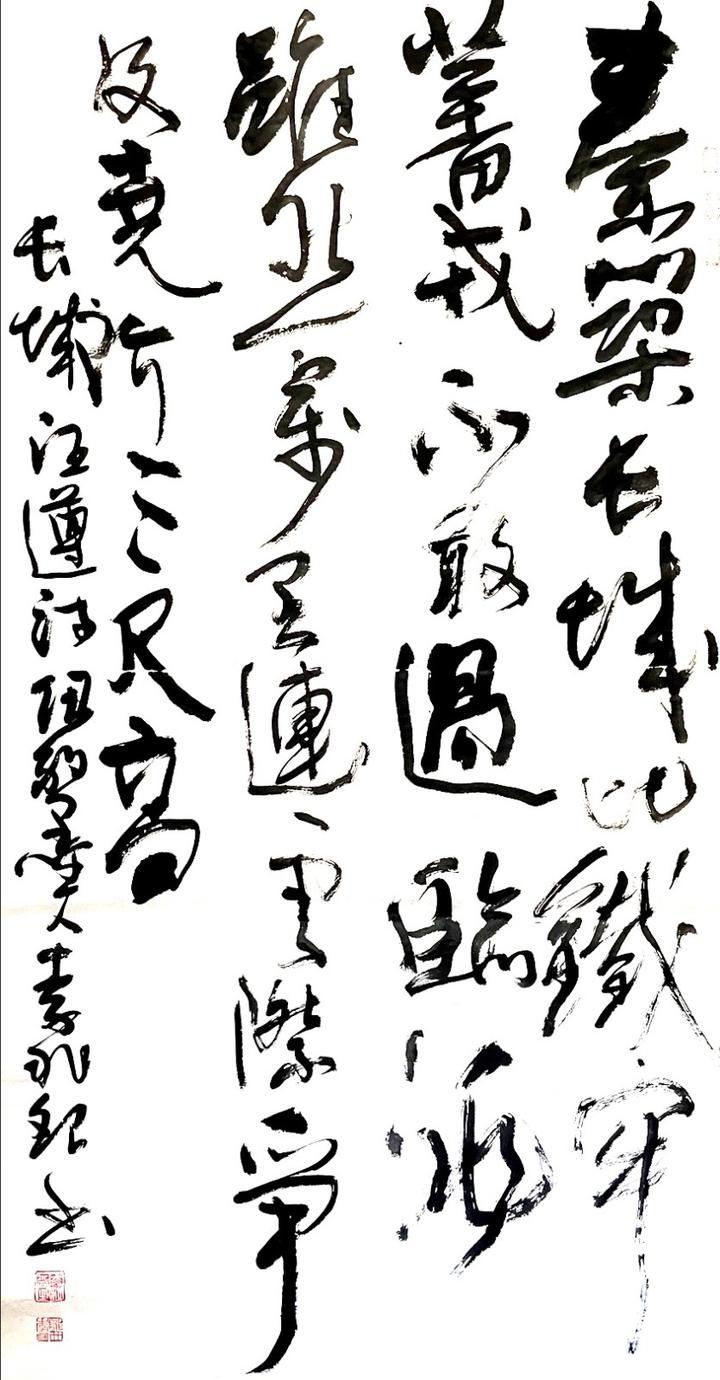 秦築长城比鐵牢
蕃戎不敢過臨洮
雖然萬里連雲際爭
及堯阶三尺高
长城汪遵诗书